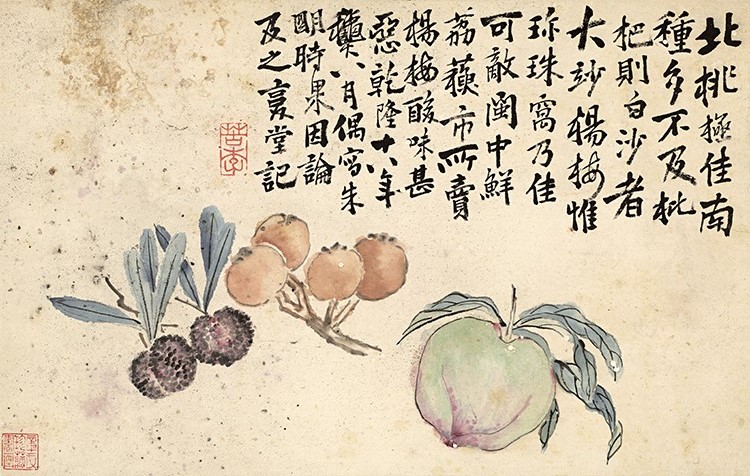 北桃極佳南
種多不及枇
杷則白沙者
大竗楊梅惟
珎珠窩乃佳
可敵閩中鮮
荔蘓市所賣
楊梅酸味甚
惡乾隆十八年
八月偶寫朱
朙時果因論
及之堂記
苦李